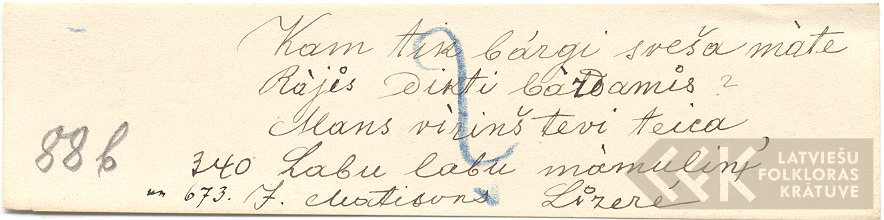 Kam tik bárgi sveša màte
Ràjès dikti bàrdamis?
Mans vìrinš tevi teica
88b
340 Labu labu màmulinj
" 673. J. Matisons Lìzerè
LATVIEŠU
FOLKLORAS
KRĀTUVE